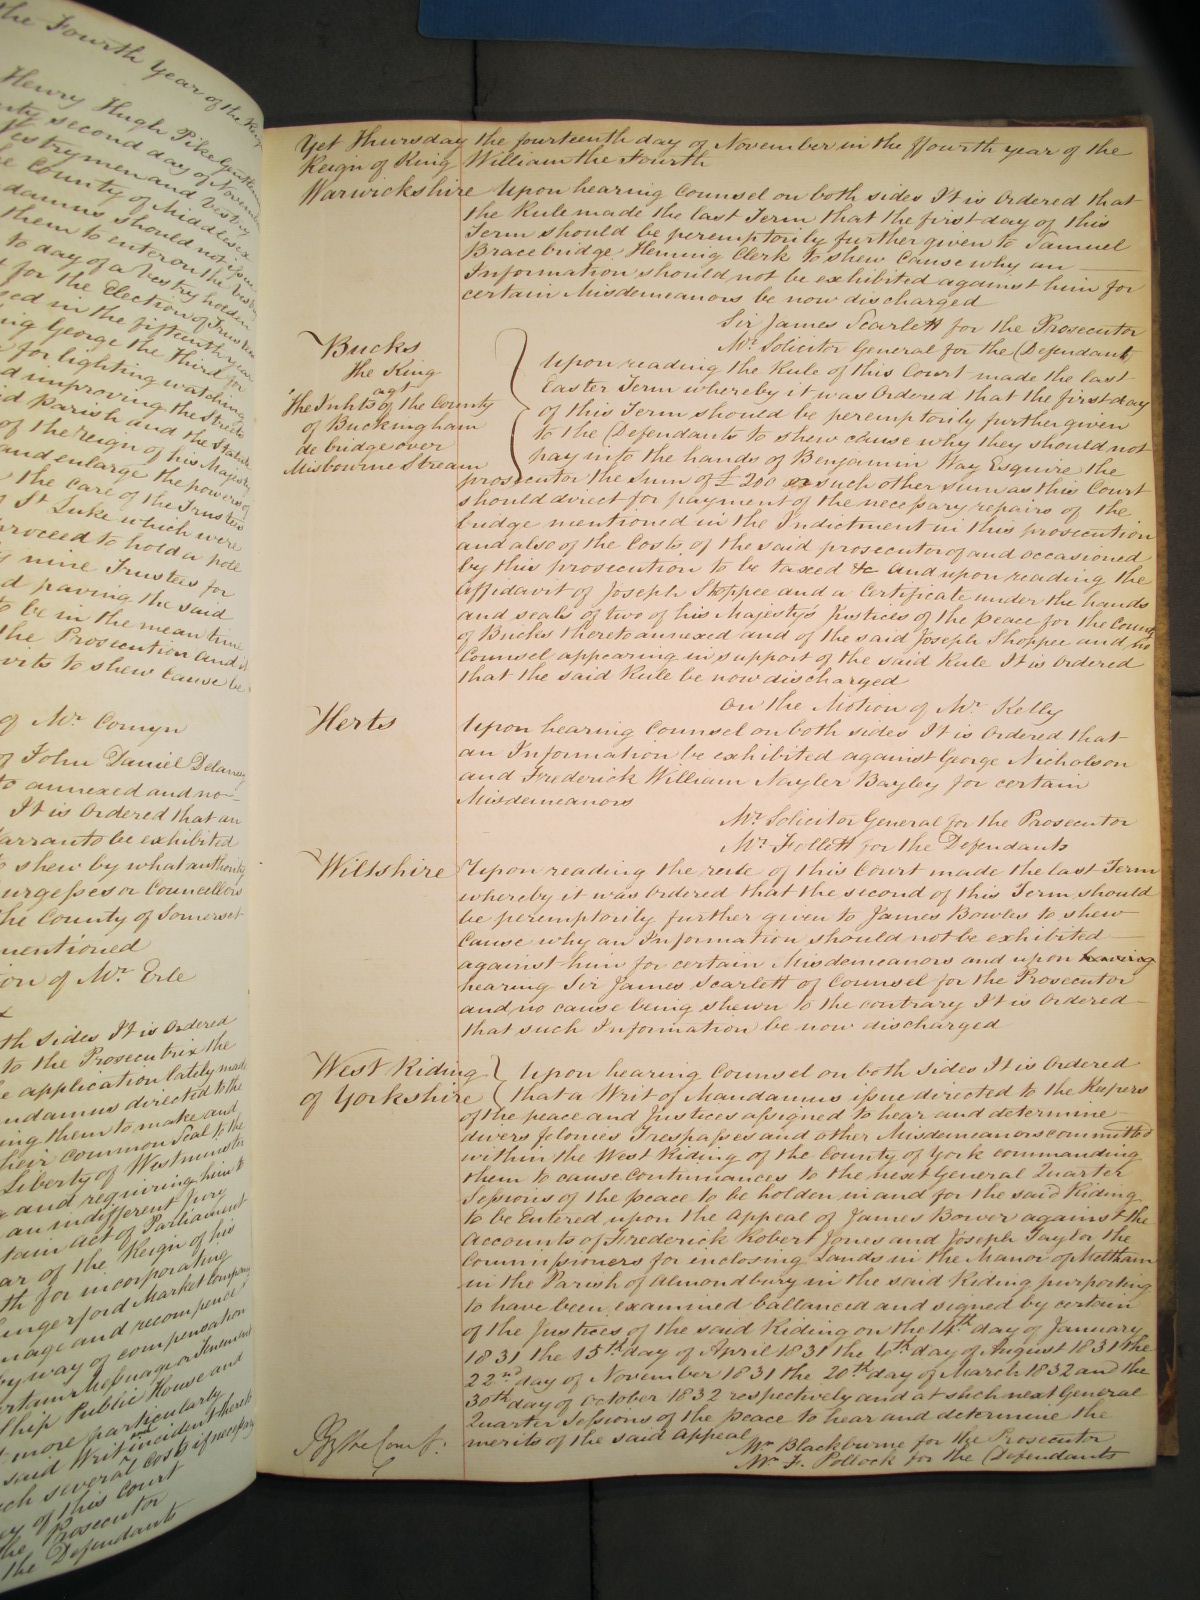 the Fourth Year of the King
Henry Hugh Pike Gentlemen
second day of November
Vestrymen and Vestry
County of Middlesex
damus should not issue
them to enter on the
to day of a Vestry holden
for the Election of Trustees
in the fifteenth year
George the Third for
for lighting watching
d improving the Streets
Parish and the
of the reign of his Majesty
and enlarge the powers of
the care of the Trustees
St Luke which were
proceed to hold a poll
nine Trustees for
d paving the said
to be in the mean time
the Prosecution and
to shew Cause
of Mr. Comyn
of John Daniel Delaney
to annexed and no
It is Ordered that an
to be exhibited
to shew by what authority
urgesses or Councillors
the County of Somerset
mentioned
of Mr. Erle
th sides It is Ordered
to the Prosecutrix the
application lately made
ndamus directed to the
ing them to make and
their common Seal to the
Liberty of Westminster
and requiring him to
an indifferent Jury
tain Act of Parliament
ar of the Reign of his
th for incorporating
ungerford Market Company
mage and recompence
by way of compensation
Messuage or Tenement
Ship Public House and
more particularly
said Writ and incident thereto
ch several Costs if necessary
ey of this Court
the Prosecutor
the Defendants
Yet Thursday the fourteenth day of November in the ffourth year of the
Reign of King William the Fourth
Warwickshire Upon hearing Counsel on both sides It is Ordered that
the Rule made the last Term that the first day of this
Term should be peremptorily further given to Samuel
Bracebridge Heming Clerk to shew Cause why an
Information should not be exhibited against him for
certain Misdemeanors be now discharged
Sir James Scarlett for the Prosecutor
Mr. Solicitor General for the Defendant
Bucks
The King
agt
The Inhts of the County
of Buckingham
de bridge over
Misbourne Stream
Upon reading the Rule of this Court made the last
Easter Term whereby it was Ordered that the first day
of this Term should be peremptorily further given
to the Defendants to shew cause why they should not
pay into the hands of Benjamin Way Esquire the
prosecutor the sum of £200 or such other sum as this Court
should direct for payment of the necessary repairs of the
bridge mentioned in the Indictment in this prosecution
and also of the Costs of the said prosecutor of and occasioned
by this prosecution to be taxed &c And upon reading the
affidavit of Joseph Shoppee and a Certificate under the hands
and seals of two of his Majesty's Justices of the peace for the County
of Bucks thereto annexed and of the said Joseph Shoppee and no
Counsel appearing in support of the said Rule It is Ordered
that the said Rule be now discharged
On the Motion of Mr. Kelly
Herts Upon hearing Counsel on both sides It is Ordered that
an Information be exhibited against George Nicholson
and Frederick William Nayler Bayley for certain
Misdemeanors
Mr. Solicitor General for the Prosecutor
Mr. Follett for the Defendants
Wiltshire Upon reading the rule of this Court made the last Term
whereby it was Ordered that the second of this Term should
be peremptorily further given to James Bowles to shew
Cause why an Information should not be exhibited
against him for certain Misdemeanors and upon having
hearing Sir James Scarlett of Counsel for the Prosecutor
and no cause being shewn to the contrary It is Ordered
that such Information be now discharged
West Riding
of Yorkshire
Upon hearing Counsel on both sides It is Ordered
that a Writ of Mandamus issue directed to the Keepers
of the peace and Justices assigned to hear and determine
divers felonies Trespasses and other Misdemeanors committed
within the West Riding of the County of York commanding
them to cause Continuances to the next General Quarter
Sessions of the peace to be holden in and for the said Riding
to be Entered upon the Appeal of James Bower against the
Accounts of Frederick Robert Jones and Joseph Taylor the
Commissioners for inclosing Lands in the Manor of Meltham
in the Parish of Almondbury in the said Riding purporting
to have been examined ballanced and signed by certain
of the Justices of the said Riding on the 14th day of January
1831 the 15th day of April 1831 the 6th day of August 1831 the
22nd day of November 1831 the 20th day of March 1832 and the
30th day of October 1832 respectively and at such next General
Quarter Sessions of the peace to hear and determine the
merits of the said Appeal
Mr. Blackburne for the Prosecutor
Mr. F. Pollock for the Defendants
By the Court